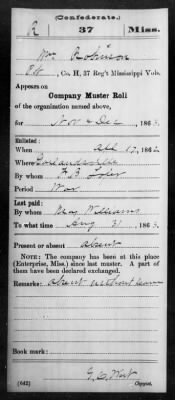 (Confederate.)
R 37 Miss.
Wm Robinson
Pvt, Co. H, 37 Reg't Mississippi Vols.
Appears on
Company Muster Roll
of the organization named above,
for Nov & Dec, 1863.
Enlisted:
When Apl 17, 1862
Where
By whom
Period War
Last paid:
By whom Maj Williams
To what time Aug 31, 1863.
Present or absent Absent
NOTE: The company has been at this place
(Enterprise, Miss.) since last muster. A part of
them have been declared exchanged.
Remarks: Absent without leave
Book mark:
(642) Copyist.